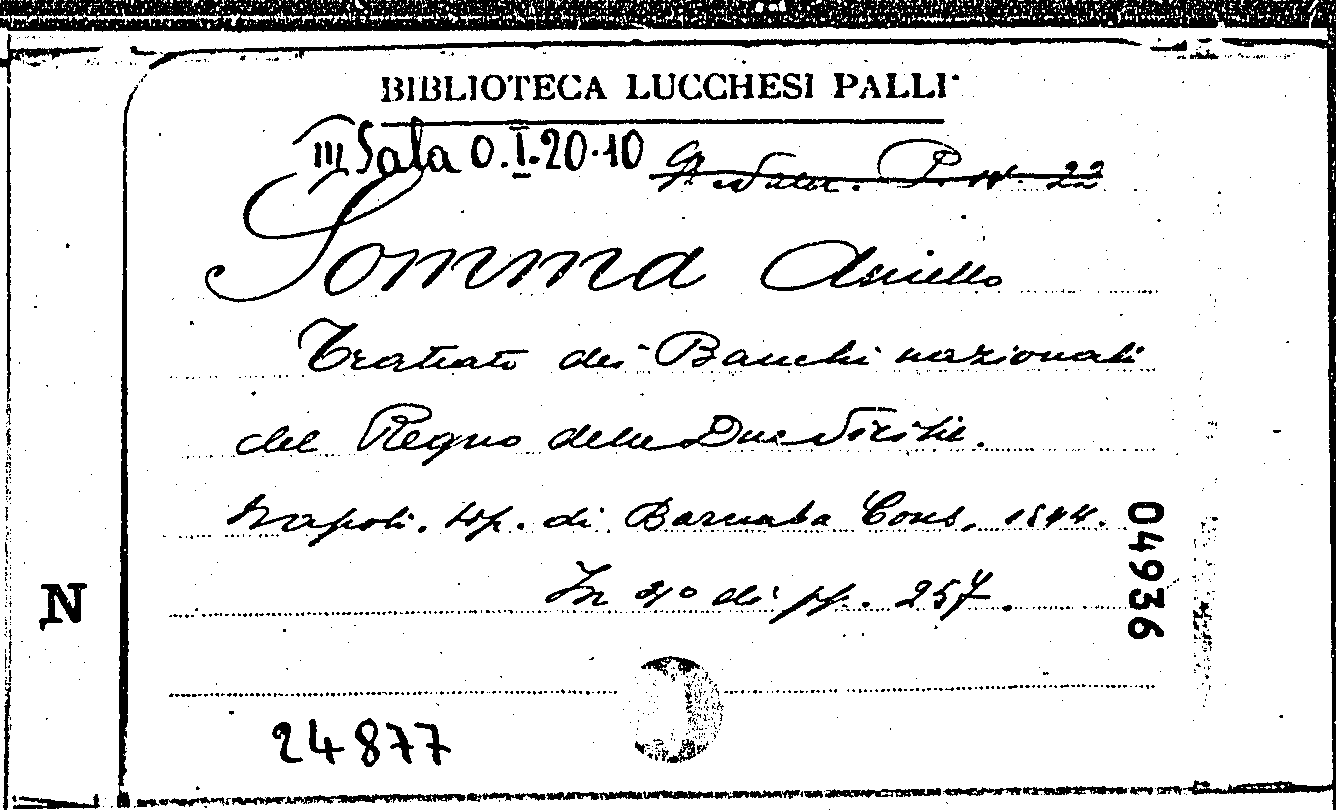 BIBLIOTECA LUCCHESI PALLI
III Sala O.I.20.10 P. 22
Somma Aniello
Trattato dei Banchi nazionali
del Regno delle Due Sicilie.
Napoli. tip. di Barnaba Cons, 1844.
In 4° di pp. 257.
N
04936
24877